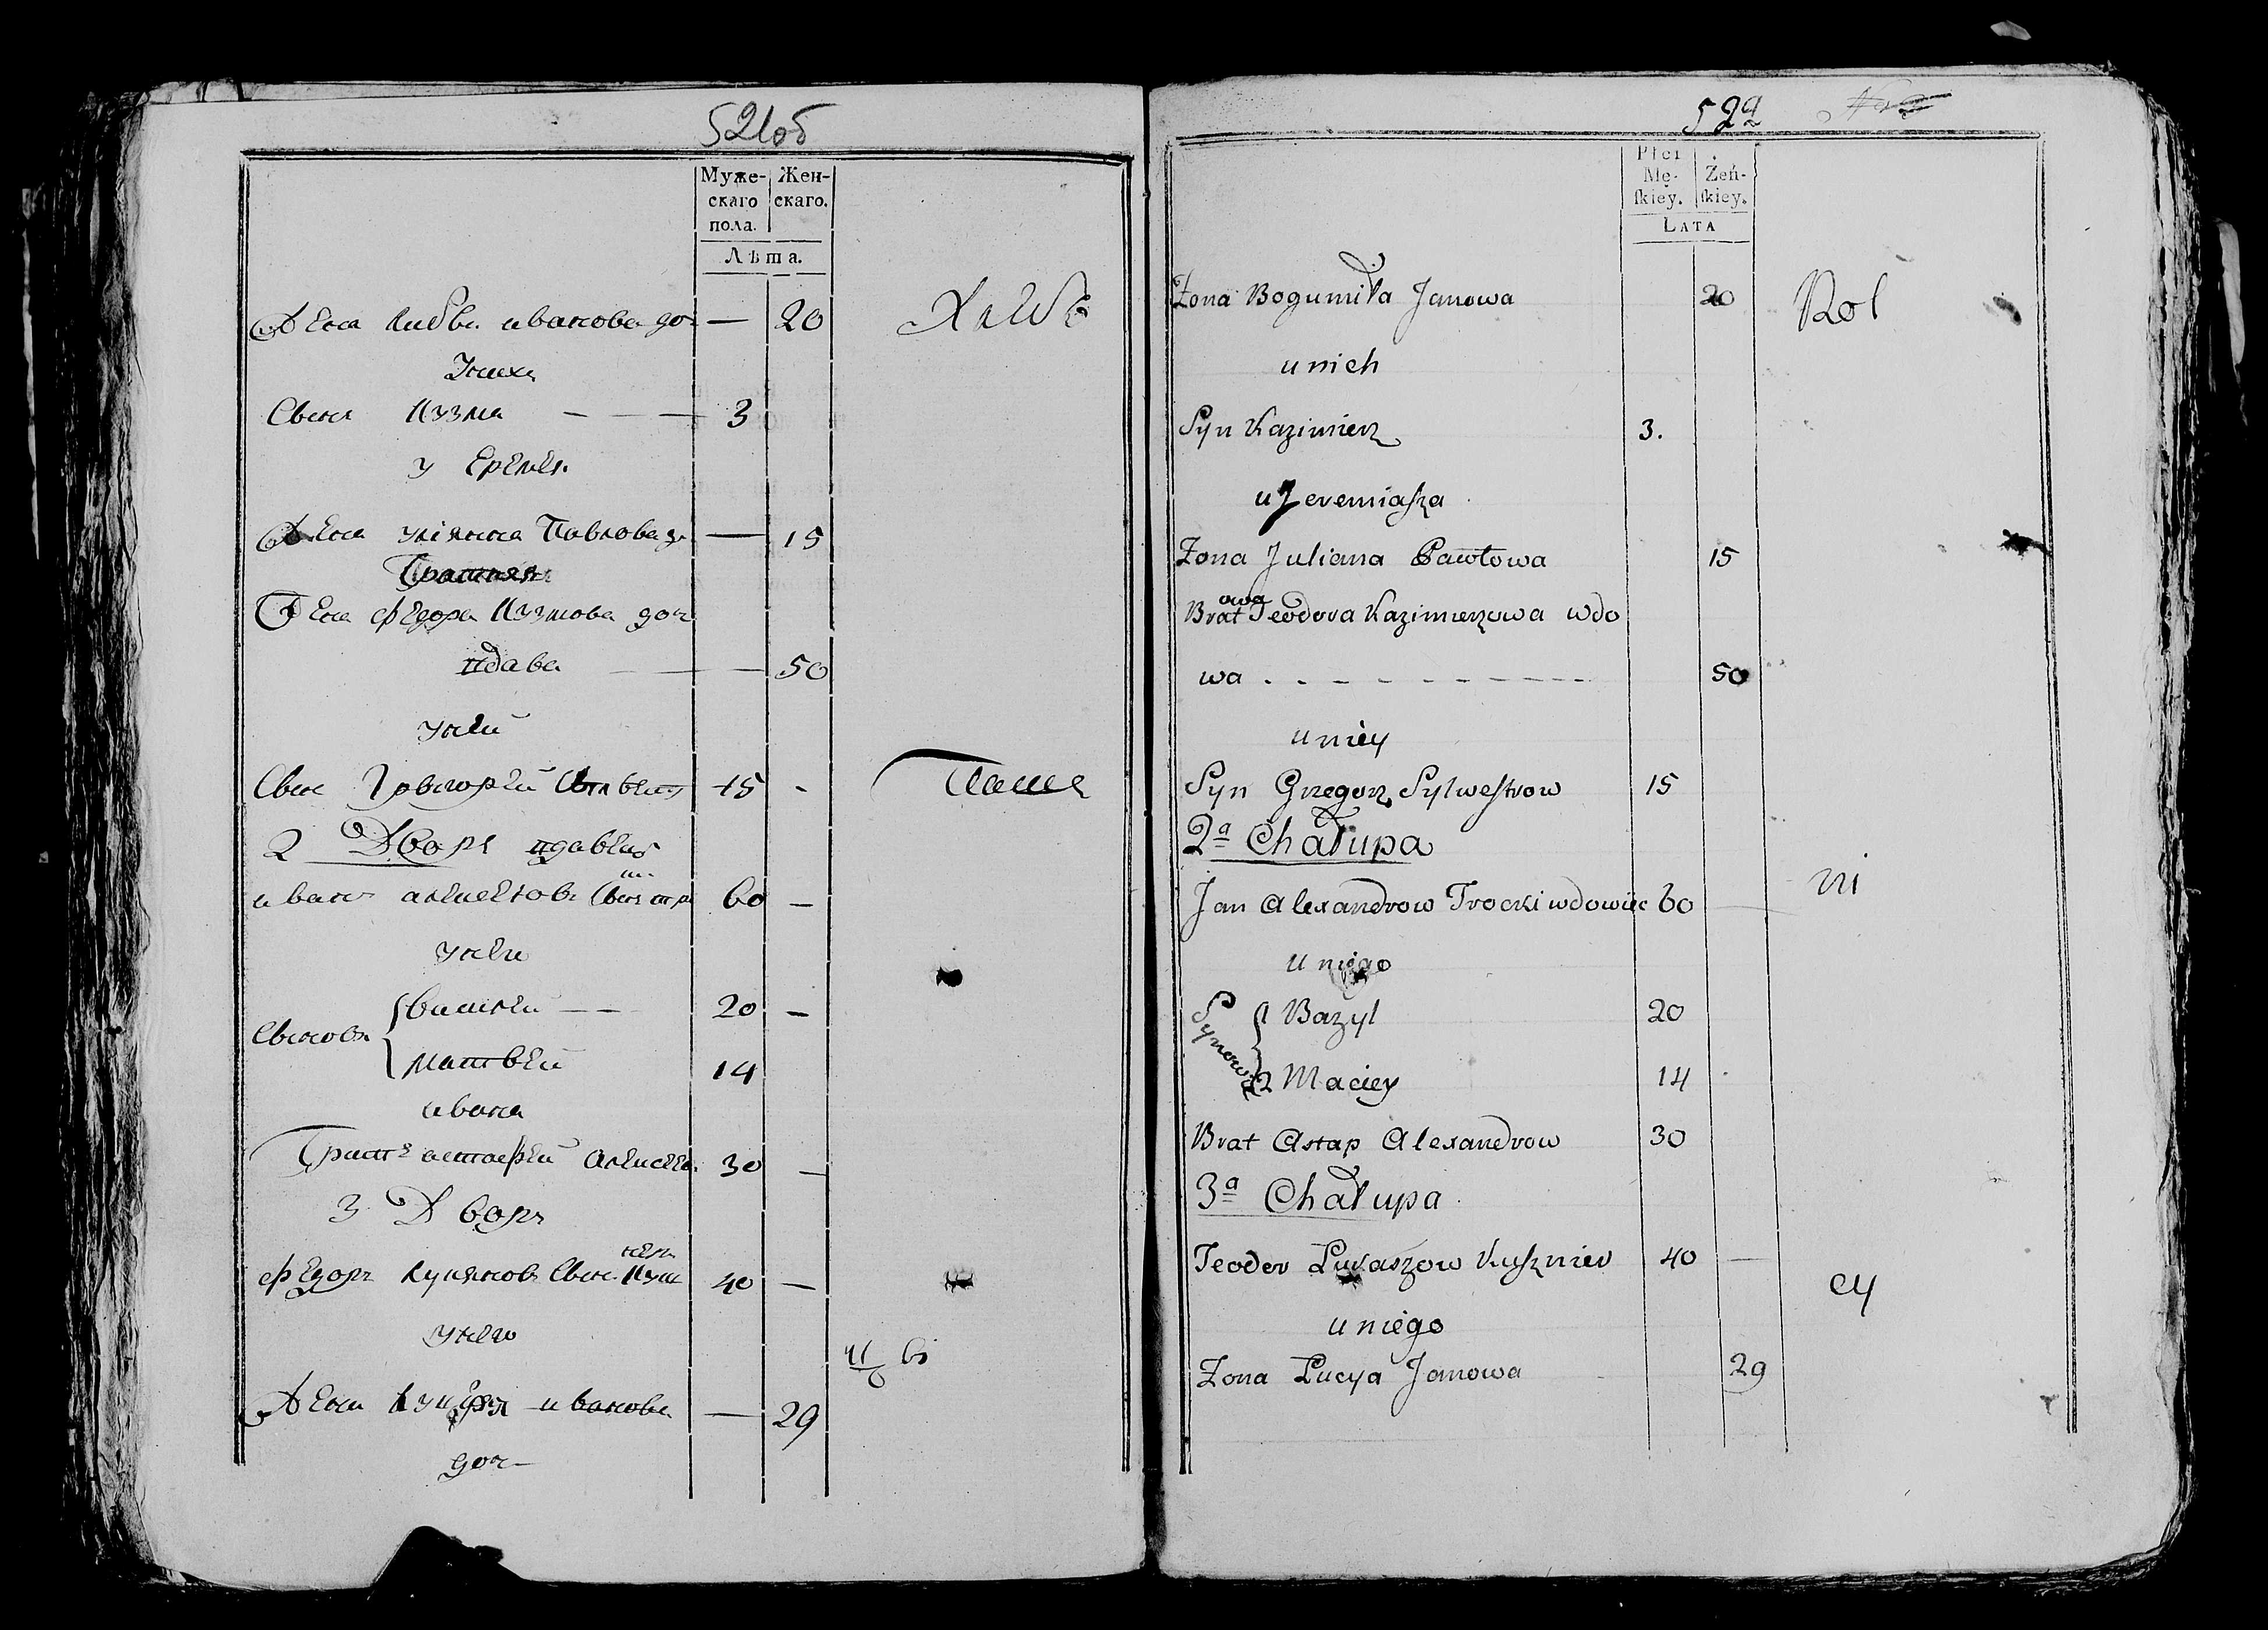 521об
Муже-
скаго
пола.
Жен-
скаго.
Лѣта.
Жена Любва иванова доч — 20
Хлѣбо
У нихъ
Сынъ Кузма — — — 3
у Еремея
Жена улiянна Павлова д — 15
Жена Федора Кузмова доч
вдава — — 50
у ней
Сынъ Григорей 15 -
Паше
2 Дворъ вдавецъ
иванъ алексеевъ 60 —
у него
Сыновя { василей — — 20 —
матвей 14
ивана
Братъ астафей алексеев 30 —
3 Дворъ
Федоръ лукяновъ сынъ Кушнеръ 40 —
у него
Жена лукеря иванова — 29
доч —
522
Płci
Mę-
ſkiey.
Żeń-
ſkiey.
LATA
Żona Bogumiła Janowa 20
Rol
u nich
Syn Kazimierz 3.
u Jeremiaſza
Żona Juliana Pawłowa 15
Bratowa Teodora Kazimierzowa wdo
wa . - - - - - - - - 50
u niey
Syn Grzegorz Sylweſtrow 15
2a Chałupa
ni
Jan Alexandrow Trocki wdowiec 60 —
u niego
Synowie { 1 Bazyl 20
2 Maciey 14
Brat Astap Alexandrow 30
3a Chałupa
Teodor Łukaszow Kuſznier 40 —
cy
u niego
Żona Łucya Janowa 29